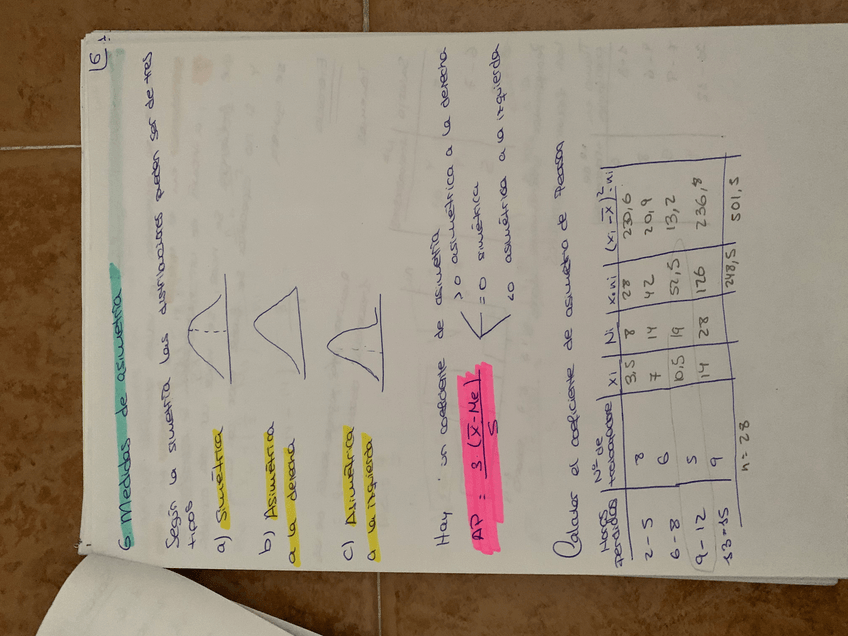 6
6 Medidas de asimetría
Según la simetría las distribuciones pueden ser de tres
tipos
a) Simétrica
b) Asimétrica
a la derecha
c) Asimétrica
a la izquierda
Hay un coeficiente de asimetría
>0 asimétrica a la derecha
AP = 3(x̄-Me) / S
=0 simétrica
<0 asimétrica a la izquierda
Calcular el coeficiente de asimetría de Pearson
Horas perdidas | Nº de trabajadores | xi | Ni | xi·ni | (xi-x̄)²·ni
2-5 | 8 | 3,5 | 8 | 28 | 230,6
6-8 | 6 | 7 | 14 | 42 | 20,9
9-12 | 5 | 10,5 | 19 | 52,5 | 13,2
13-15 | 9 | 14 | 28 | 126 | 236,8
n=28 248,5 501,5